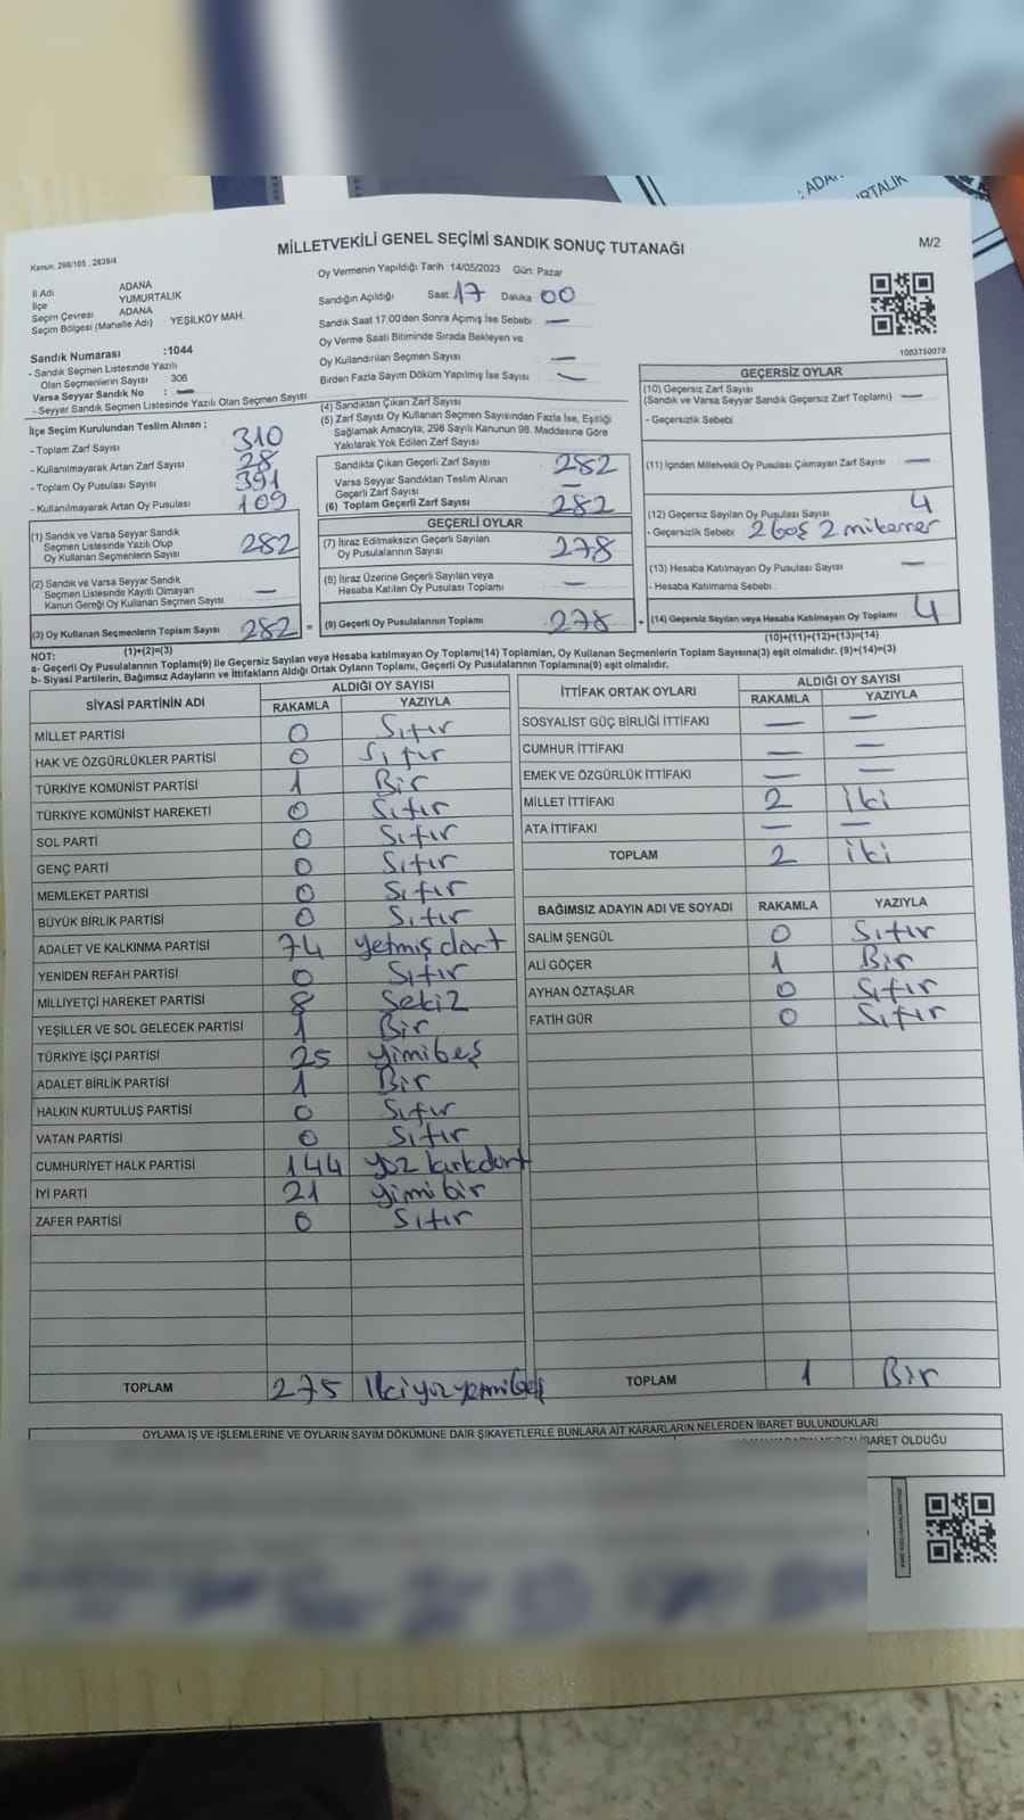 : ADA
RTALIK
MİLLETVEKİLİ GENEL SEÇİMİ SANDIK SONUÇ TUTANAĞI
M/2
Kanun: 298/105 , 2839/4
İl Adı ADANA
İlçe YUMURTALIK
Seçim Çevresi ADANA
Seçim Bölgesi (Mahalle Adı) YEŞİLKÖY MAH.
Oy Vermenin Yapıldığı Tarih :14/05/2023 Gün: Pazar
Sandığın Açıldığı Saat: 17 Dakika 00
Sandık Saat 17:00'den Sonra Açımış İse Sebebi —
Oy Verme Saati Bitiminde Sırada Bekleyen ve
Oy Kullandırılan Seçmen Sayısı —
Birden Fazla Sayım Döküm Yapılmış İse Sayısı —
1003750078
Sandık Numarası :1044
- Sandık Seçmen Listesinde Yazılı
Olan Seçmenlerin Sayısı 306
Varsa Seyyar Sandık No : —
- Seyyar Sandık Seçmen Listesinde Yazılı Olan Seçmen Sayısı
İlçe Seçim Kurulundan Teslim Alınan ;
- Toplam Zarf Sayısı 310
- Kullanılmayarak Artan Zarf Sayısı 28
- Toplam Oy Pusulası Sayısı 391
- Kullanılmayarak Artan Oy Pusulası 109
(1) Sandık ve Varsa Seyyar Sandık
Seçmen Listesinde Yazılı Olup
Oy Kullanan Seçmenlerin Sayısı 282
(2) Sandık ve Varsa Seyyar Sandık
Seçmen Listesinde Kayıtlı Olmayan
Kanun Gereği Oy Kullanan Seçmen Sayısı —
(3) Oy Kullanan Seçmenlerin Toplam Sayısı 282 =
(1)+(2)=(3)
(4) Sandıktan Çıkan Zarf Sayısı
(5) Zarf Sayısı Oy Kullanan Seçmen Sayısından Fazla İse, Eşitliği
Sağlamak Amacıyla, 298 Sayılı Kanunun 98. Maddesine Göre
Yakılarak Yok Edilen Zarf Sayısı
Sandıkta Çıkan Geçerli Zarf Sayısı 282
Varsa Seyyar Sandıktan Teslim Alınan
Geçerli Zarf Sayısı —
(6) Toplam Geçerli Zarf Sayısı 282
GEÇERLİ OYLAR
(7) İtiraz Edilmeksizin Geçerli Sayılan
Oy Pusulalarının Sayısı 278
(8) İtiraz Üzerine Geçerli Sayılan veya
Hesaba Katılan Oy Pusulası Toplamı —
(9) Geçerli Oy Pusulalarının Toplamı 278 +
GEÇERSİZ OYLAR
(10) Geçersiz Zarf Sayısı
(Sandık ve Varsa Seyyar Sandık Geçersiz Zarf Toplamı) —
- Geçersizlik Sebebi
(11) İçinden Milletvekili Oy Pusulası Çıkmayan Zarf Sayısı —
(12) Geçersiz Sayılan Oy Pusulası Sayısı 4
- Geçersizlik Sebebi 2 boş 2 mükerrer
(13) Hesaba Katılmayan Oy Pusulası Sayısı —
- Hesaba Katılmama Sebebi
(14) Geçersiz Sayılan veya Hesaba Katılmayan Oy Toplamı 4
(10)+(11)+(12)+(13)=(14)
NOT:
a- Geçerli Oy Pusulalarının Toplamı(9) ile Geçersiz Sayılan veya Hesaba katılmayan Oy Toplamı(14) Toplamları, Oy Kullanan Seçmenlerin Toplam Sayısına(3) eşit olmalıdır. (9)+(14)=(3)
b- Siyasi Partilerin, Bağımsız Adayların ve İttifakların Aldığı Ortak Oyların Toplamı, Geçerli Oy Pusulalarının Toplamına(9) eşit olmalıdır.
SİYASİ PARTİNİN ADI ALDIĞI OY SAYISI
RAKAMLA YAZIYLA
MİLLET PARTİSİ 0 Sıfır
HAK VE ÖZGÜRLÜKLER PARTİSİ 0 Sıfır
TÜRKİYE KOMÜNİST PARTİSİ 1 Bir
TÜRKİYE KOMÜNİST HAREKETİ 0 Sıfır
SOL PARTİ 0 Sıfır
GENÇ PARTİ 0 Sıfır
MEMLEKET PARTİSİ 0 Sıfır
BÜYÜK BİRLİK PARTİSİ 0 Sıfır
ADALET VE KALKINMA PARTİSİ 74 yetmiş dört
YENİDEN REFAH PARTİSİ 0 Sıfır
MİLLİYETÇİ HAREKET PARTİSİ 8 Sekiz
YEŞİLLER VE SOL GELECEK PARTİSİ 1 Bir
TÜRKİYE İŞÇİ PARTİSİ 25 yimibeş
ADALET BİRLİK PARTİSİ 1 Bir
HALKIN KURTULUŞ PARTİSİ 0 Sıfır
VATAN PARTİSİ 0 Sıfır
CUMHURİYET HALK PARTİSİ 144 yüz kırkdört
İYİ PARTİ 21 yimi bir
ZAFER PARTİSİ 0 Sıfır
TOPLAM 275
İTTİFAK ORTAK OYLARI ALDIĞI OY SAYISI
RAKAMLA YAZIYLA
SOSYALİST GÜÇ BİRLİĞİ İTTİFAKI — —
CUMHUR İTTİFAKI — —
EMEK VE ÖZGÜRLÜK İTTİFAKI — —
MİLLET İTTİFAKI 2 iki
ATA İTTİFAKI — —
TOPLAM 2 iki
BAĞIMSIZ ADAYIN ADI VE SOYADI RAKAMLA YAZIYLA
SALİM ŞENGÜL 0 Sıfır
ALİ GÖÇER 1 Bir
AYHAN ÖZTAŞLAR 0 Sıfır
FATİH GÜR 0 Sıfır
TOPLAM 1 Bir
OYLAMA İŞ VE İŞLEMLERİNE VE OYLARIN SAYIM DÖKÜMÜNE DAİR ŞİKAYETLERLE BUNLARA AİT KARARLARIN NELERDEN İBARET BULUNDUKLARI
BARET OLDUĞU